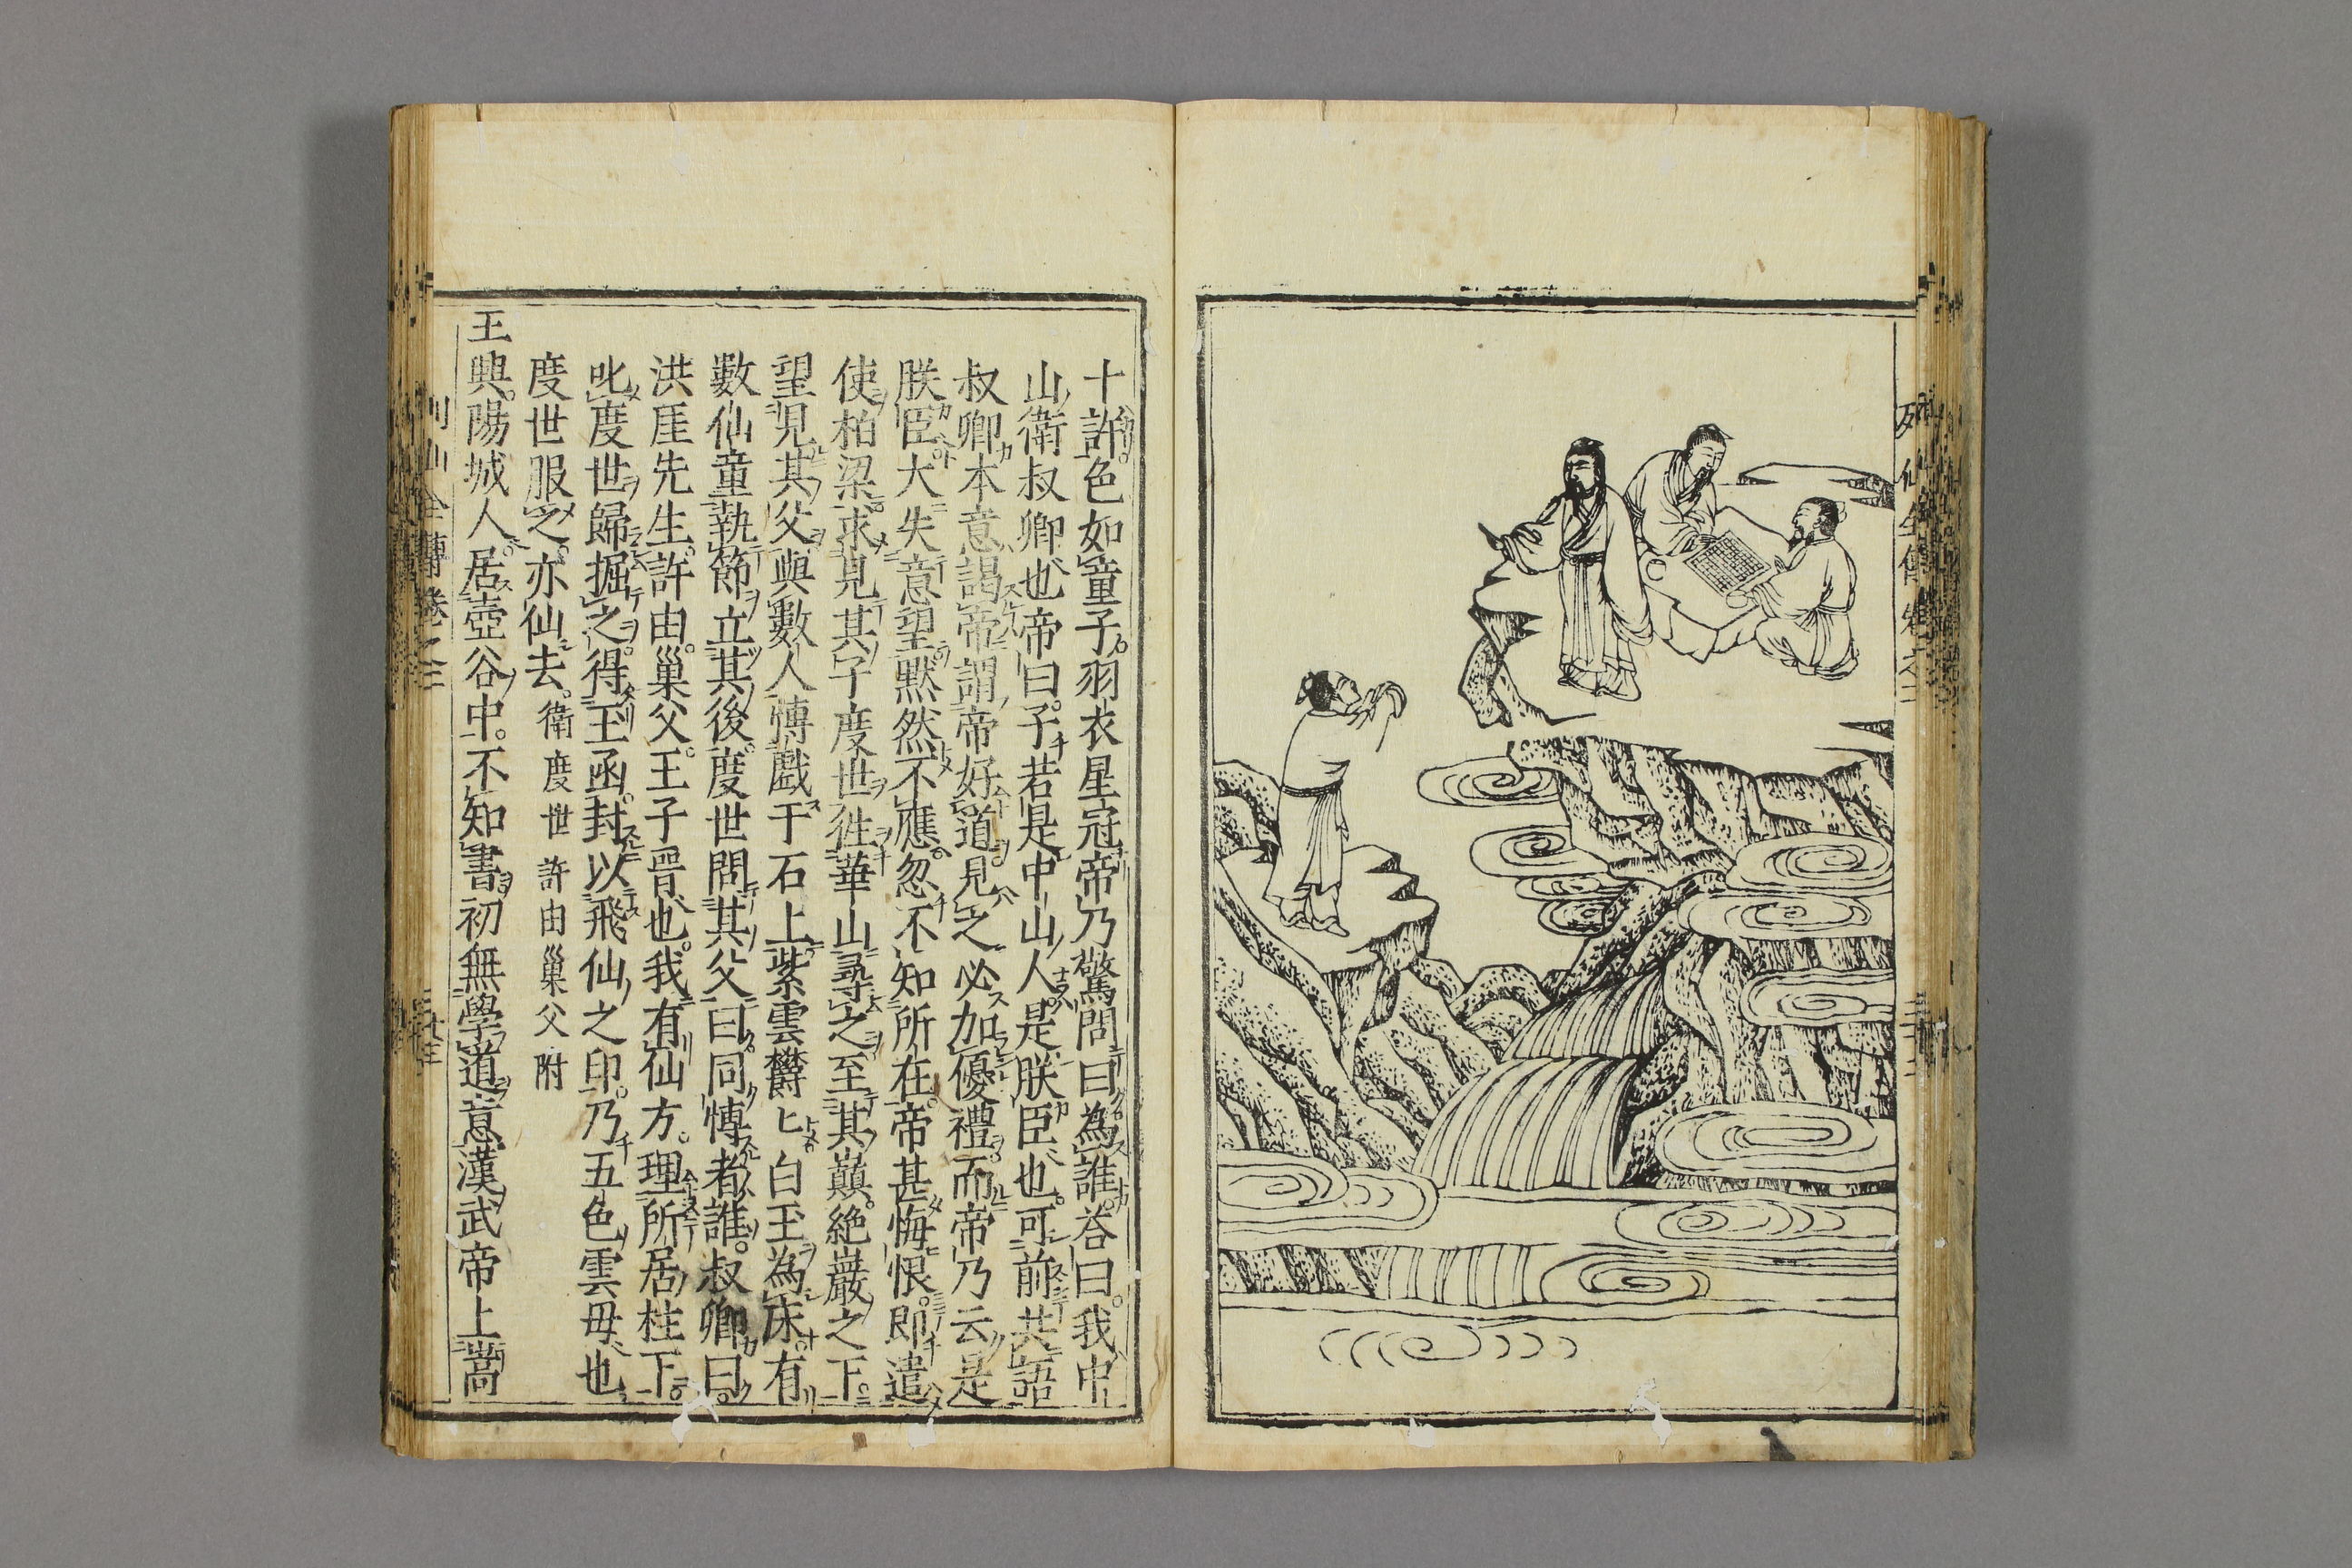 十許色如童子羽衣星冠帝乃驚問曰為誰荅曰我中
山衛叔卿也帝曰子若是中山人是朕臣也可前共語
叔卿本意謁帝謂帝好道見之必加優禮而帝乃云是
朕臣大失意望黙然不應忽不知所在帝甚悔恨即遣
使柏梁求見其子度世徃華山尋之至其巔絶巖之下
望見其父與數人博戲于石上紫雲欝匕白玉為床有
數仙童執節立其後度世問其父曰同博者誰叔卿曰
洪厓先生許由巢父王子晉也我有仙方理所居柱下
叱度世歸掘之得玉函封以飛仙之印乃五色雲母也
度世服之亦仙去衛度世許由巢父附
王興陽城人居壺谷中不知書初無學道意漢武帝上嵩